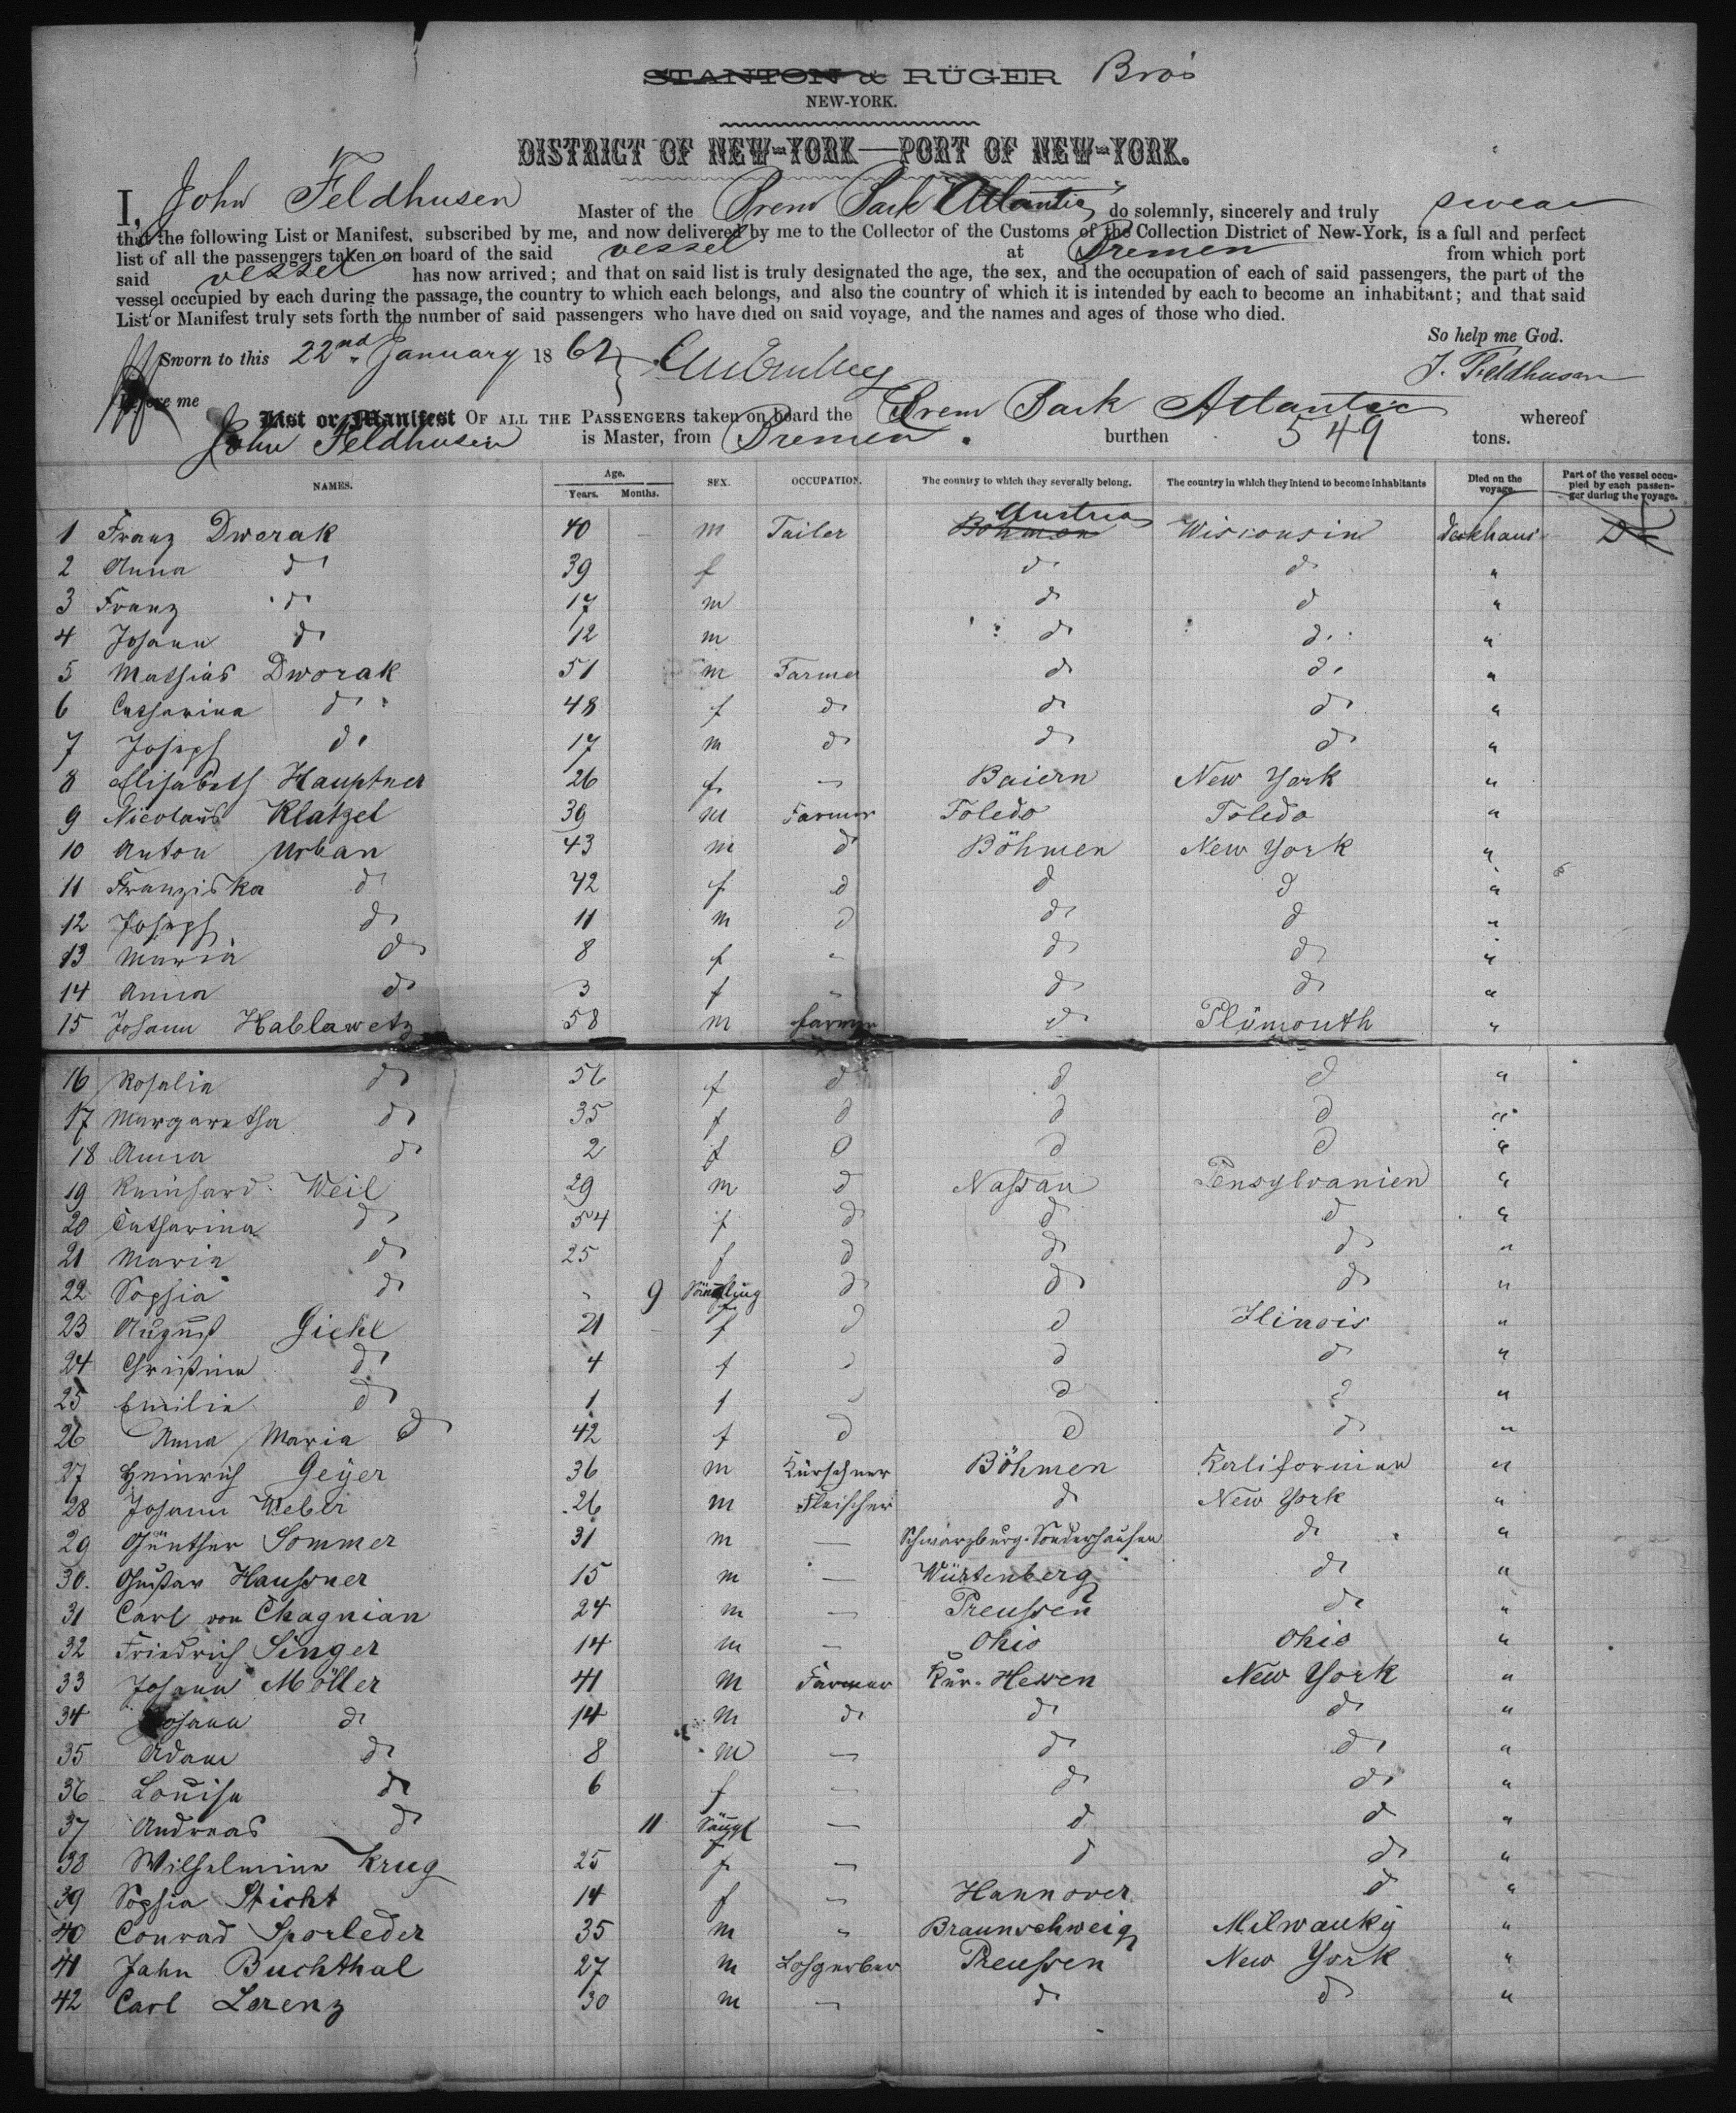 STANTON & RÜGER Bros
NEW-YORK.
DISTRICT OF NEW-YORK—PORT OF NEW-YORK.
I, John Feldhusen Master of the Brem Bark "Atlantic" do solemnly, sincerely and truly swear
that the following List or Manifest, subscribed by me, and now delivered by me to the Collector of the Customs of the Collection District of New-York, is a full and perfect
list of all the passengers taken on board of the said vessel at Bremen from which port
said vessel has now arrived; and that on said list is truly designated the age, the sex, and the occupation of each of said passengers, the part of the
vessel occupied by each during the passage, the country to which each belongs, and also the country of which it is intended by each to become an inhabitant; and that said
List or Manifest truly sets forth the number of said passengers who have died on said voyage, and the names and ages of those who died.
So help me God.
Sworn to this 22nd January 1862 J. Feldhusen
before me
List or Manifest OF ALL THE PASSENGERS taken on board the Brem Bark Atlantic whereof
John Feldhusen is Master, from Bremen. burthen 549 tons.
NAMES. Age. Years. Months. SEX. OCCUPATION. The country to which they severally belong. The country in which they intend to become inhabitants Died on the voyage. Part of the vessel occupied by each passenger during the voyage.
1 Franz Dworak 40 — m Tailer Böhmen Austria Wisconsin Deckhaus
2 Anna do 39 f do do "
3 Franz do 17 m do do "
4 Johann do 12 m do do "
5 Mathias Dworak 51 m Farmer do do "
6 Catharina do 48 f do do do "
7 Joseph do 17 m do do do "
8 Elisabeth Hauptner 26 f — Baiern New York "
9 Nicolaus Klatzel 39 m Farmer Toledo Toledo "
10 Anton Urban 43 m do Böhmen New York "
11 Franziska do 42 f do do do "
12 Joseph do 11 m do do do "
13 Maria do 8 f " do do "
14 Anna do 3 f " do do "
15 Johann Hablawetz 58 m farmer do Plümouth "
16 Rosalia do 56 f do do do "
17 Margaretha do 35 f do do do "
18 Anna do 2 f do do do "
19 Reinhard Weil 29 m do Nassau Pensylvanien "
20 Catharina do 54 f do do do "
21 Maria do 25 f do do do "
22 Sophia do " 9 Säugling do do do "
23 August Gickl 21 f do do Ilinois "
24 Christina do 4 f do do do "
25 Emilie do 1 f do do "
26 Anna Maria do 42 f do do do "
27 Heinrich Geÿer 36 m Kürschner Böhmen Kalifornien "
28 Johann Weber 26 m Fleischer do New York "
29 Günther Sommer 31 m — Schwarzburg-Sondershausen do "
30. Gustav Haussner 15 m — Würtenberg do "
31 Carl von Chagnian 24 m — Preussen do "
32 Friedrich Singer 14 m — Ohio Ohio "
33 Johann Möller 41 M Farmer Kur-Hessen New York "
34 Johann do 14 M do do do "
35 Adam do 8 M — do do "
36 Louise do 6 f — do do "
37 Andreas do 11 Säugl — do do "
38 Wilhelmine Krug 25 f — do do "
39 Sophia Sticht 14 f — Hannover do "
40 Conrad Sporleder 35 m " Braunschweig Milwauky "
41 Jahn Buchthal 27 m Lohgerber Preussen New York "
42 Carl Lorenz 30 m — do do "